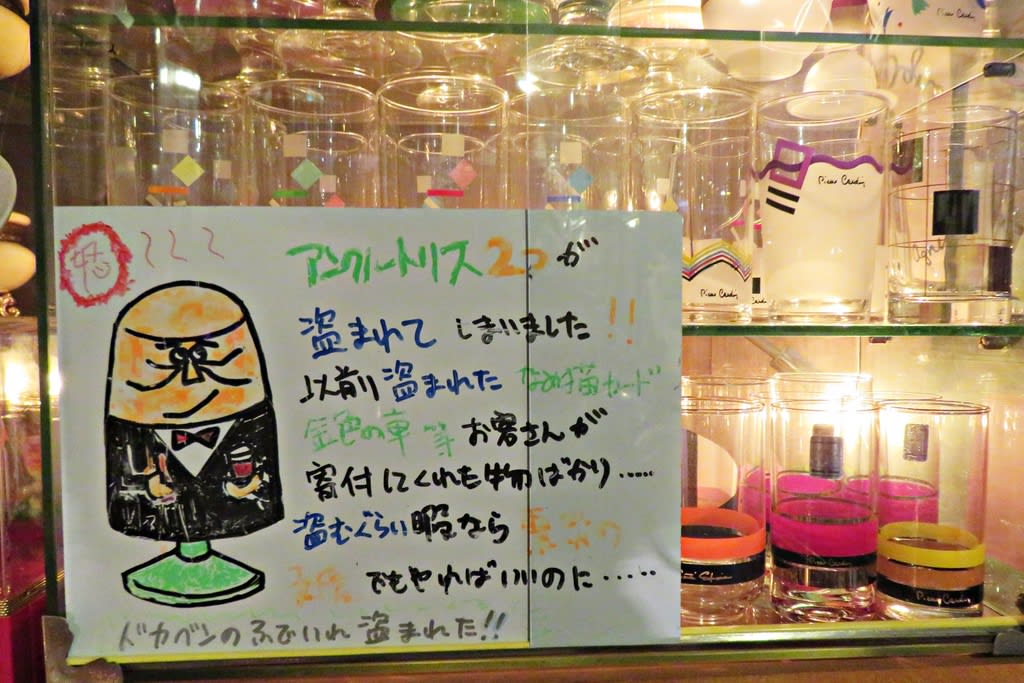 アンクルトリス2つが
盗まれてしまいました!!
以前盗まれたなめ猫カード
金色の車等お客さんが
寄付してくれた物ばかり……
盗むぐらい暇なら
でもやればいいのに……
ドカベンのふでいれ盗まれた!!
Pierre Cardin
Pierre Cardin
Pierre Cardin